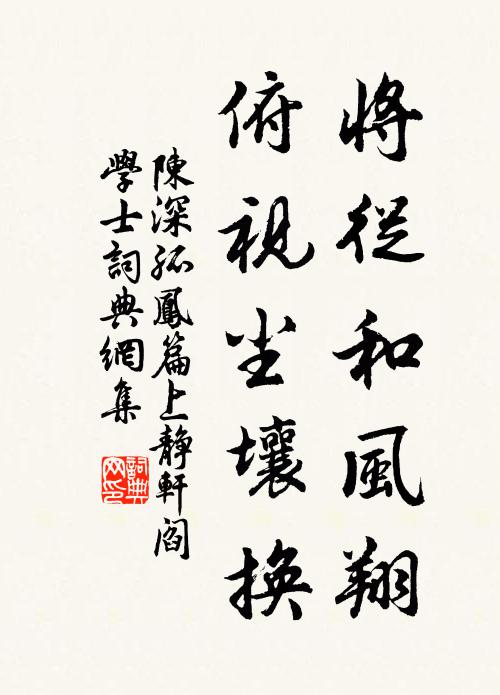 將從和風翔
俯視坐壤換
陳深孤鳳篇上靜軒閻
學士詞典網集
詞典
网印